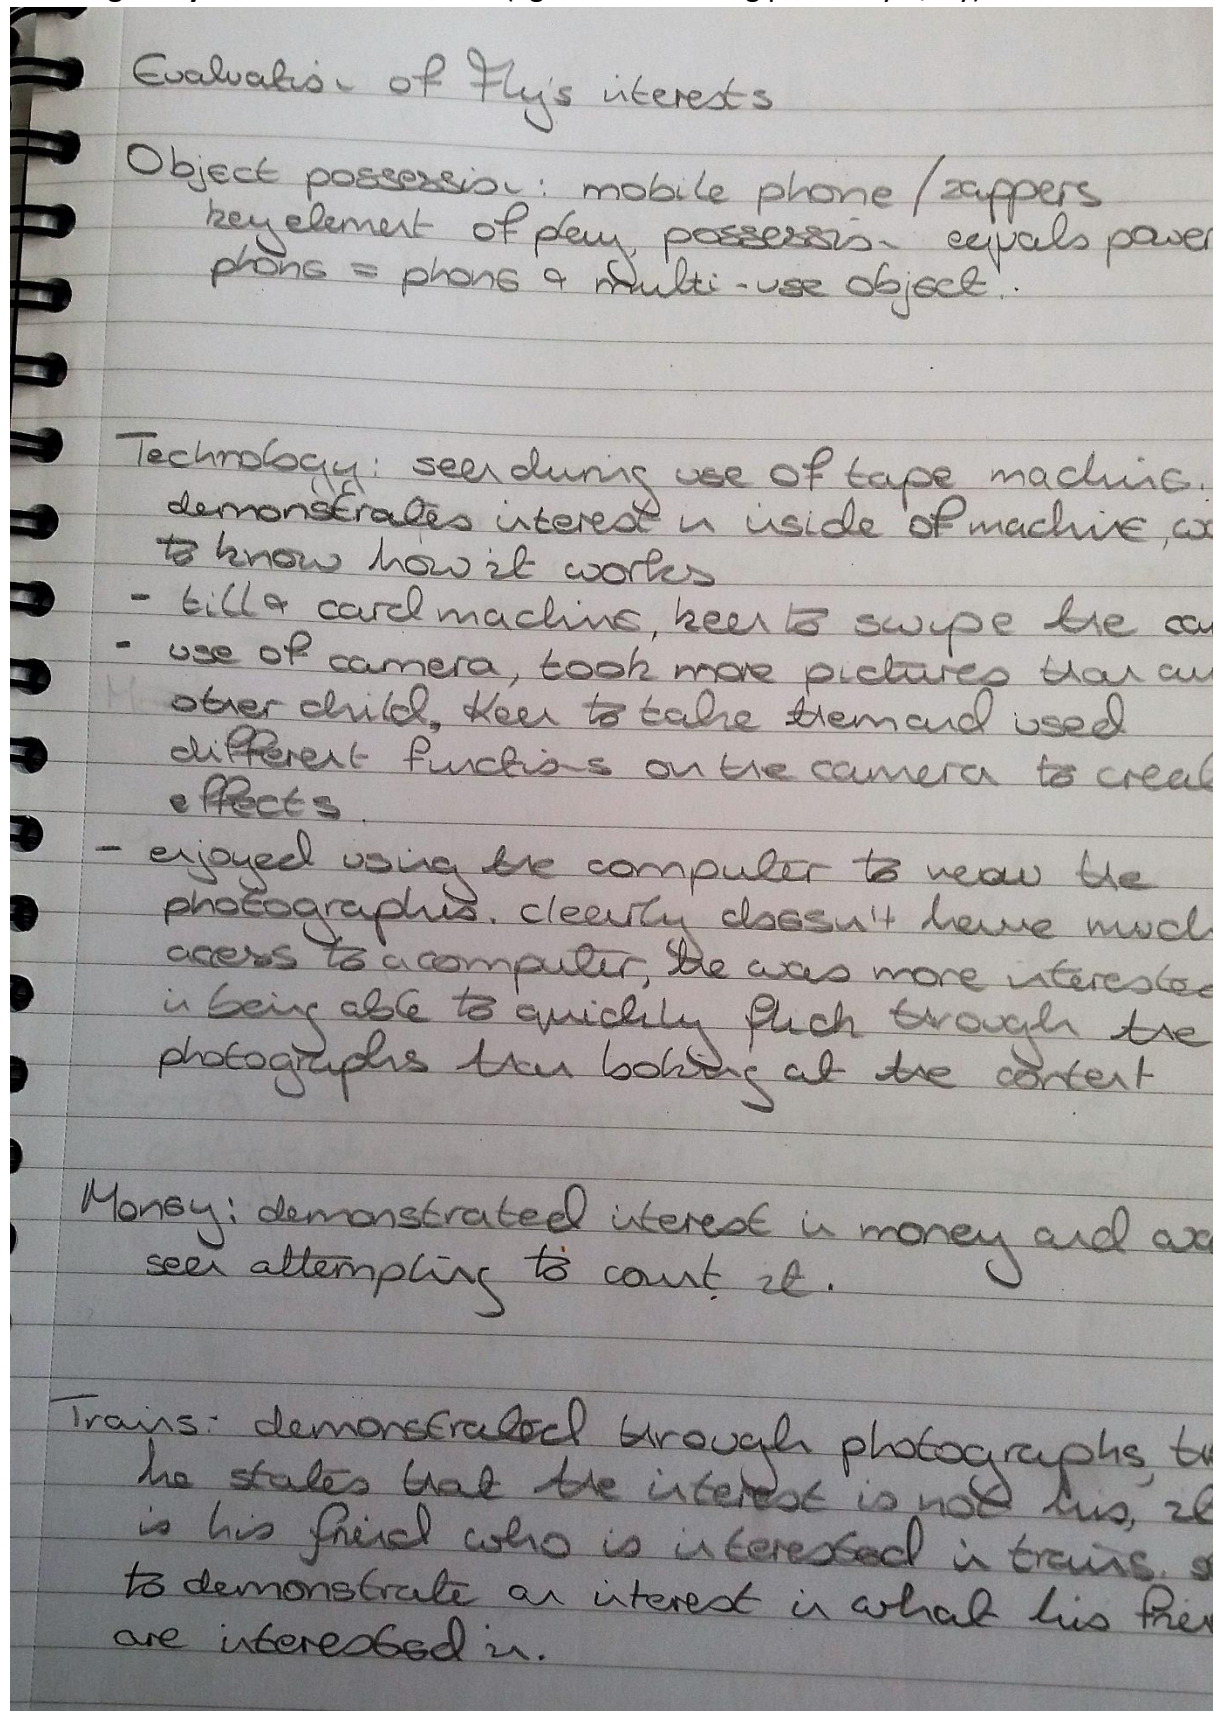 Evaluation of Fly's interests
Object possession: mobile phone / zappers
key element of play, possession equals power
phone = phone & multi-use object.
Technology: seen during use of tape machine.
demonstrates interest in inside of machine,
to know how it works
- till & card machine, keen to swipe the
- use of camera, took more pictures than
other child, keen to take them and used
different functions on the camera to
effects.
- enjoyed using the computer to veiw the
photographs. clearly doesn't have much
acess to a computer, he was more interested
in being able to quickly flick through the
photographs than looking at the content
Money: demonstrated interest in money and
seen attempting to count it.
Trains: demonstrated through photographs,
he states that the interest is not his, it
is his friend who is interested in trains.
to demonstrate an interest in what his
are interested in.